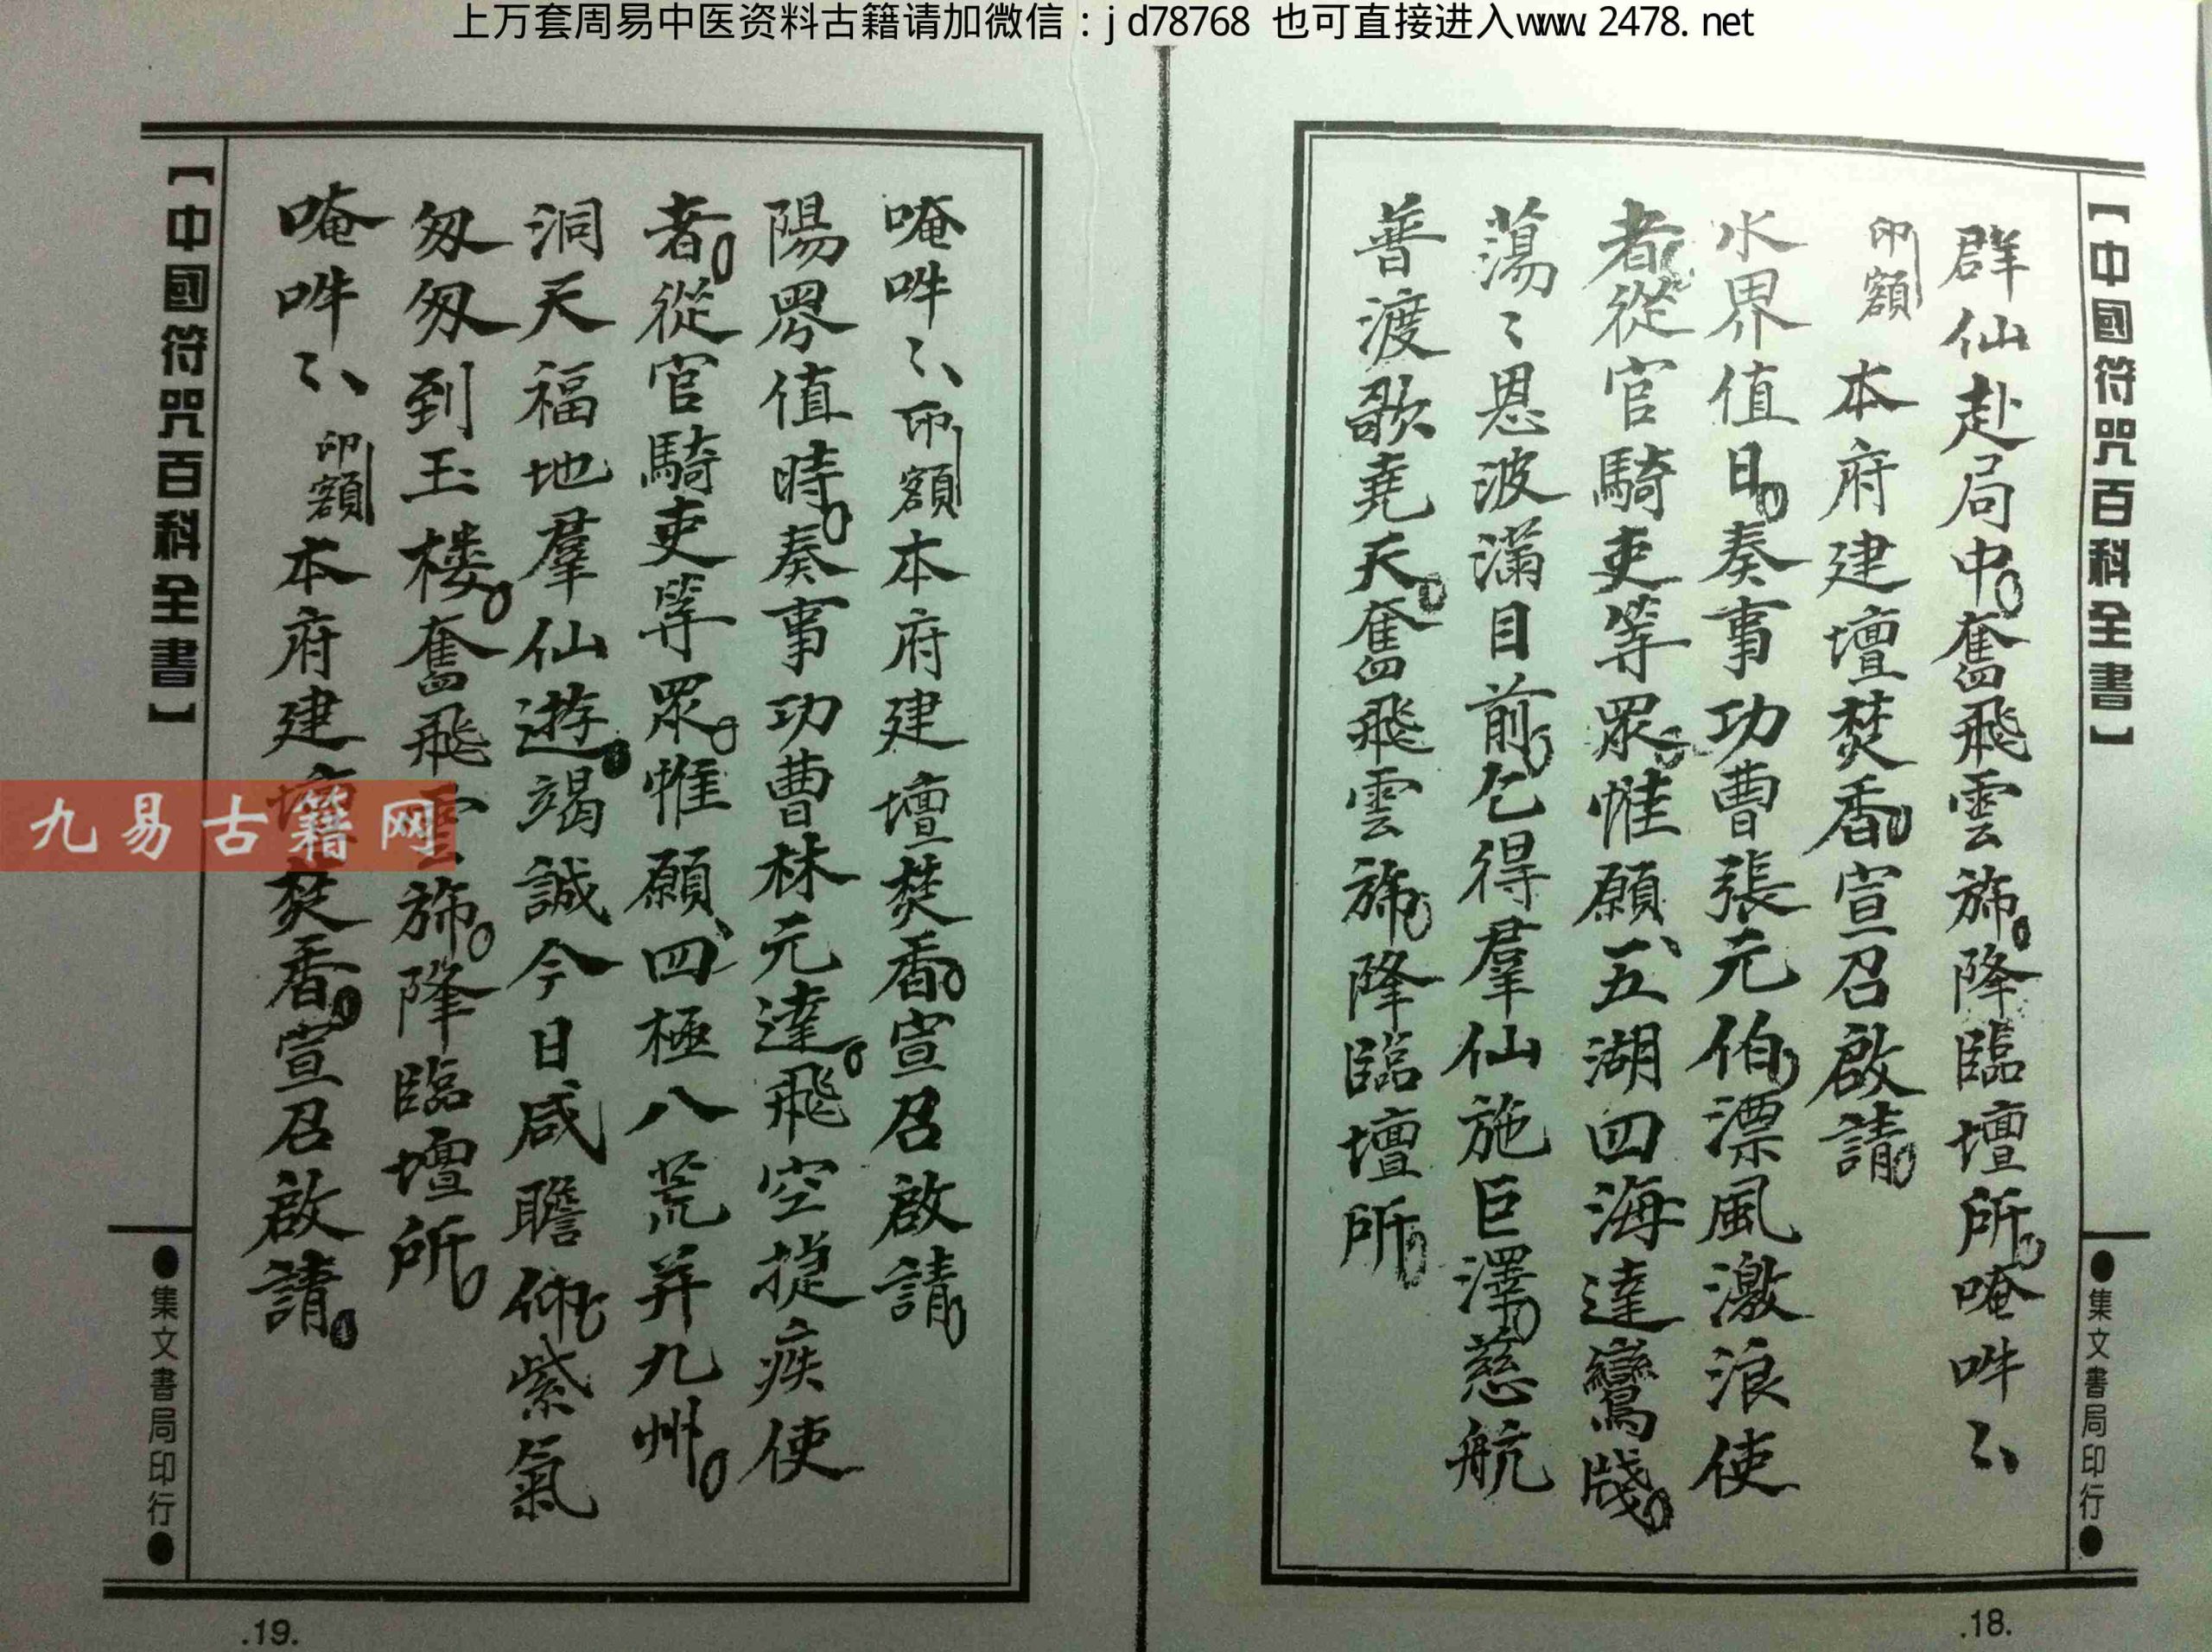 上万套周易中医资料古籍请加微信：jd78768 也可直接进入www.2478.net
【中國符咒百科全書】
●集文書局印行●
群仙赴局中奮飛雲旆降臨壇所唵吽〻
印額 本府建壇焚香宣召啟請
水界值日奏事功曹張元伯漂風激浪使
者從官騎吏等眾惟願五湖四海達鸞牋
蕩〻恩波滿目前乞得羣仙施巨澤慈航
普渡歌堯天奮飛雲旆降臨壇所
.18.
唵吽〻印額本府建壇焚香宣召啟請
陽界值時奏事功曹林元達飛空捷疾使
者從官騎吏等眾惟願四極八荒并九州
洞天福地羣仙遊竭誠今日咸瞻仰紫氣
匆匆到玉楼奮飛雲旆降臨壇所
唵吽〻印額本府建壇焚香宣召啟請
【中國符咒百科全書】
●集文書局印行●
.19.
九易古籍网